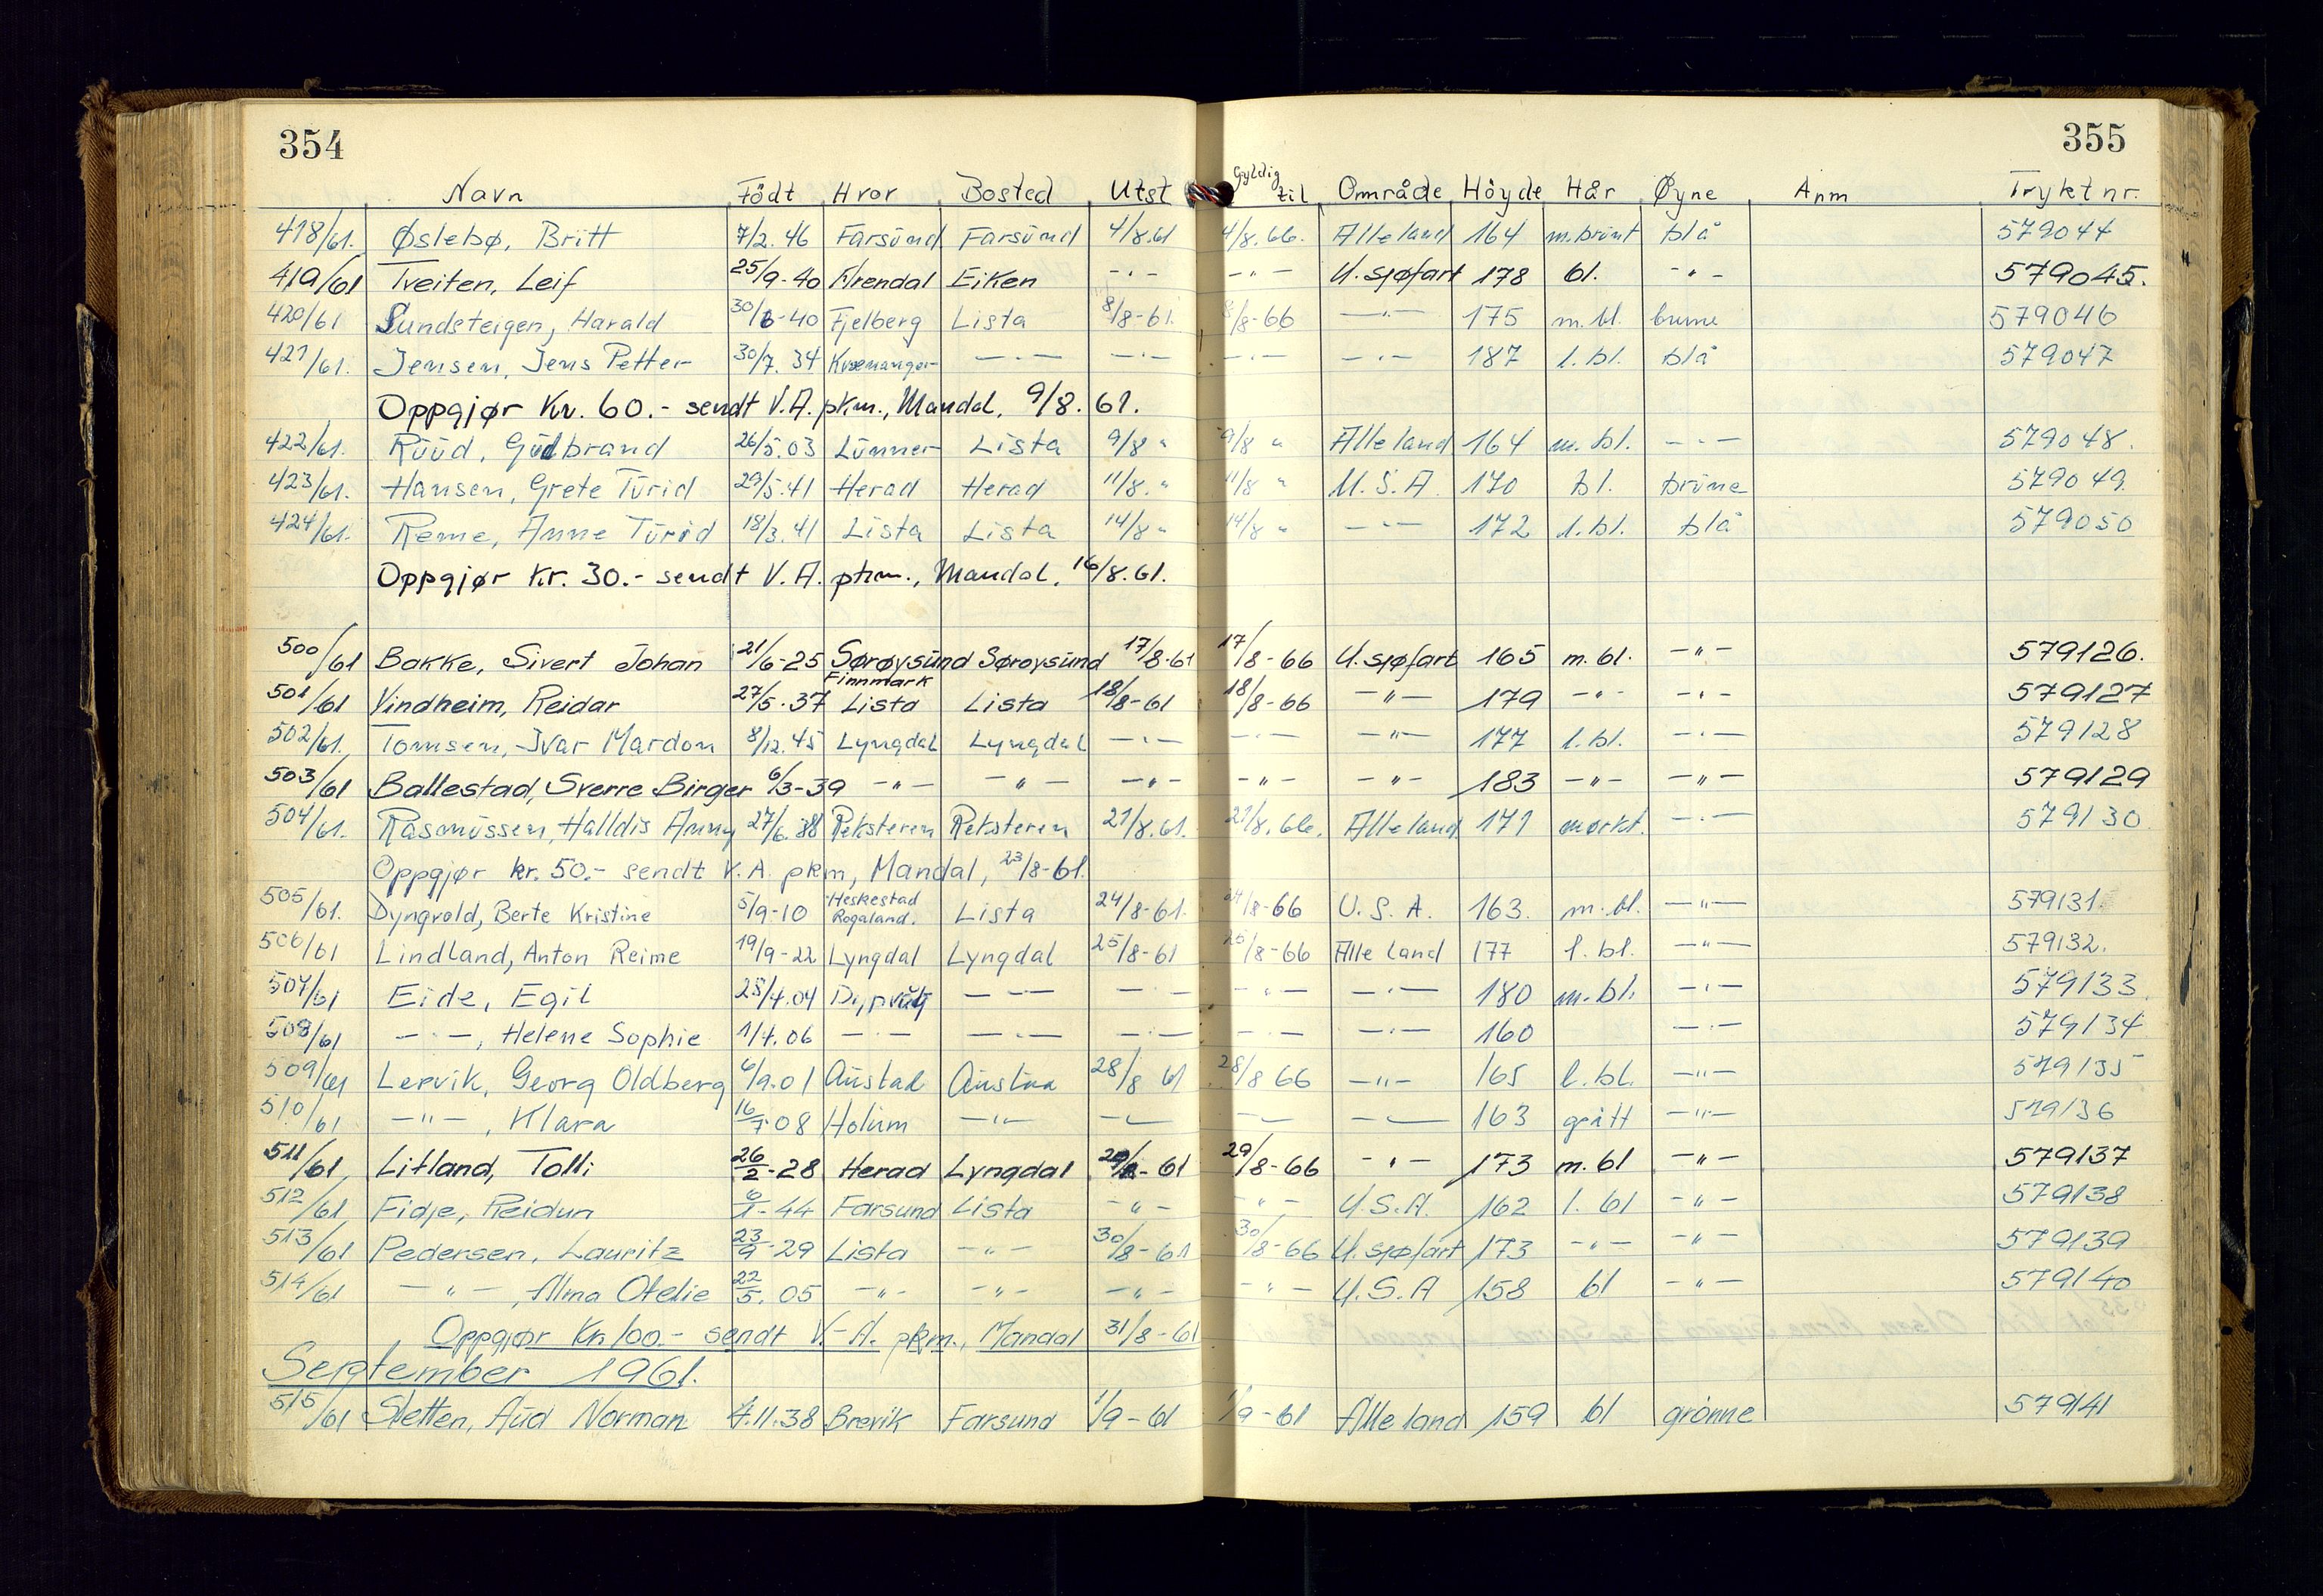 354 355
Navn Födt Hvor Bosted Utst Gyldig til Område Höyde Hår Øyne Anm Trykt nr.
418/61. Øslebø, Britt 7/2. 46 Farsund Farsund 4/8.61 4/8.66. Alle land 164 m.brunt blå 579044
419/61 Tveiten, Leif 25/9-40 Arendal Eiken -"- -"- U. sjøfart 178 bl. -"- 579045.
420/61 Sundsteigen, Harald 30/6-40 Fjelberg Lista 8/8-61. 8/8-66 -"- 175 m. bl. brune 579046
421/61. Jensen, Jens Petter 30/7. 34 Kvænanger -"- -"- -"- -"- 187 l. bl. blå 579047
Oppgjør Kr. 60.- sendt V.A. pkm., Mandal, 9/8. 61.
422/61. Ruud, Gulbrand 26/5.03 Lunner Lista 9/8 " 9/8 " Alle land 164 m. bl. -"- 579048.
423/61. Hansen, Grete Turid 29/5.41 Herad Herad 11/8. " 11/8 " U.S.A. 170 bl. brune 579049.
424/61. Reme, Anne Turid 18/3. 41 Lista Lista 14/8 " 14/8 " -"- 172 l. bl. blå 579050
Oppgjør Kr. 30.- sendt V.A. pkm., Mandal, 16/8. 61.
500/61 Bakke, Sivert Johan 21/6-25 Sørøysund Finnmark Sørøysund 17/8-61 17/8-66 U. sjøfart 165 m. bl. -"- 579126.
501/61 Vindheim, Reidar 27/5.37 Lista Lista 18/8-61 18/8-66 -"- 179 -"- -"- 579127
502/61. Tomsen, Ivar Mardon 8/12.45 Lyngdal Lyngdal -"- -"- -"- 177 l. bl. -"- 579128
503/61 Ballestad, Sverre Birger 6/3-39 -"- -"- -"- -"- -"- 183 -"- -"- 579129
504/61. Rasmussen, Halldis Anny 27/6.38 Reksteren Reksteren 21/8.61. 21/8.66. Alle land 171 mørkt. -"- 579130
Oppgjør kr. 50.- sendt V.A. pkm, Mandal, 23/8-61.
505/61. Dyngvold, Berte Kristine 5/9-10 Heskestad Rogaland. Lista 24/8-61. 24/8-66 U.S.A. 163. m. bl. -"- 579131.
506/61 Lindland, Anton Reime 19/9-22 Lyngdal Lyngdal 25/8-61 25/8-66 Alle land 177 l. bl. -"- 579132.
507/61 Eide, Egil 25/4.04 -"- -"- -"- -"- 180 m. bl. -"- 579133.
508/61 -"-, Helene Sophie 1/4.06 -"- -"- -"- -"- -"- 160 -"- 579134
509/61 Lervik, Georg Oldberg 6/9.01 Austad Austad 28/8 61 28/8 66 -"- 165 l. bl. -"- 579135
510/61 -"-, Klara 16/7.08 Holum -"- -"- -"- -"- 163 grått -"- 579136
511/61 Litland, Tolli 26/2-28 Herad Lyngdal 29/8-61 29/8-66 -"- 173 m. bl -"- 579137
512/61 Fidje, Reidun 6/1-44 Farsund Lista -"- -"- U.S.A. 162 l. bl -"- 579138
513/61 Pedersen, Lauritz 23/9-29 Lista -"- 30/8-61 30/8-66 U. sjøfart 173 -"- -"- 579139
514/61 -"-, Alma Otelie 22/5.05 -"- -"- -"- -"- U.S.A 158 bl -"- 579140
Oppgjør Kr. 100.- sendt V.-A. pkm., Mandal 31/8-61
September 1961.
515/61 Sletten, Aud Norman 4.11.38 Brevik Farsund 1/9-61 1/9-61 Alle land 159 bl grønne 579141